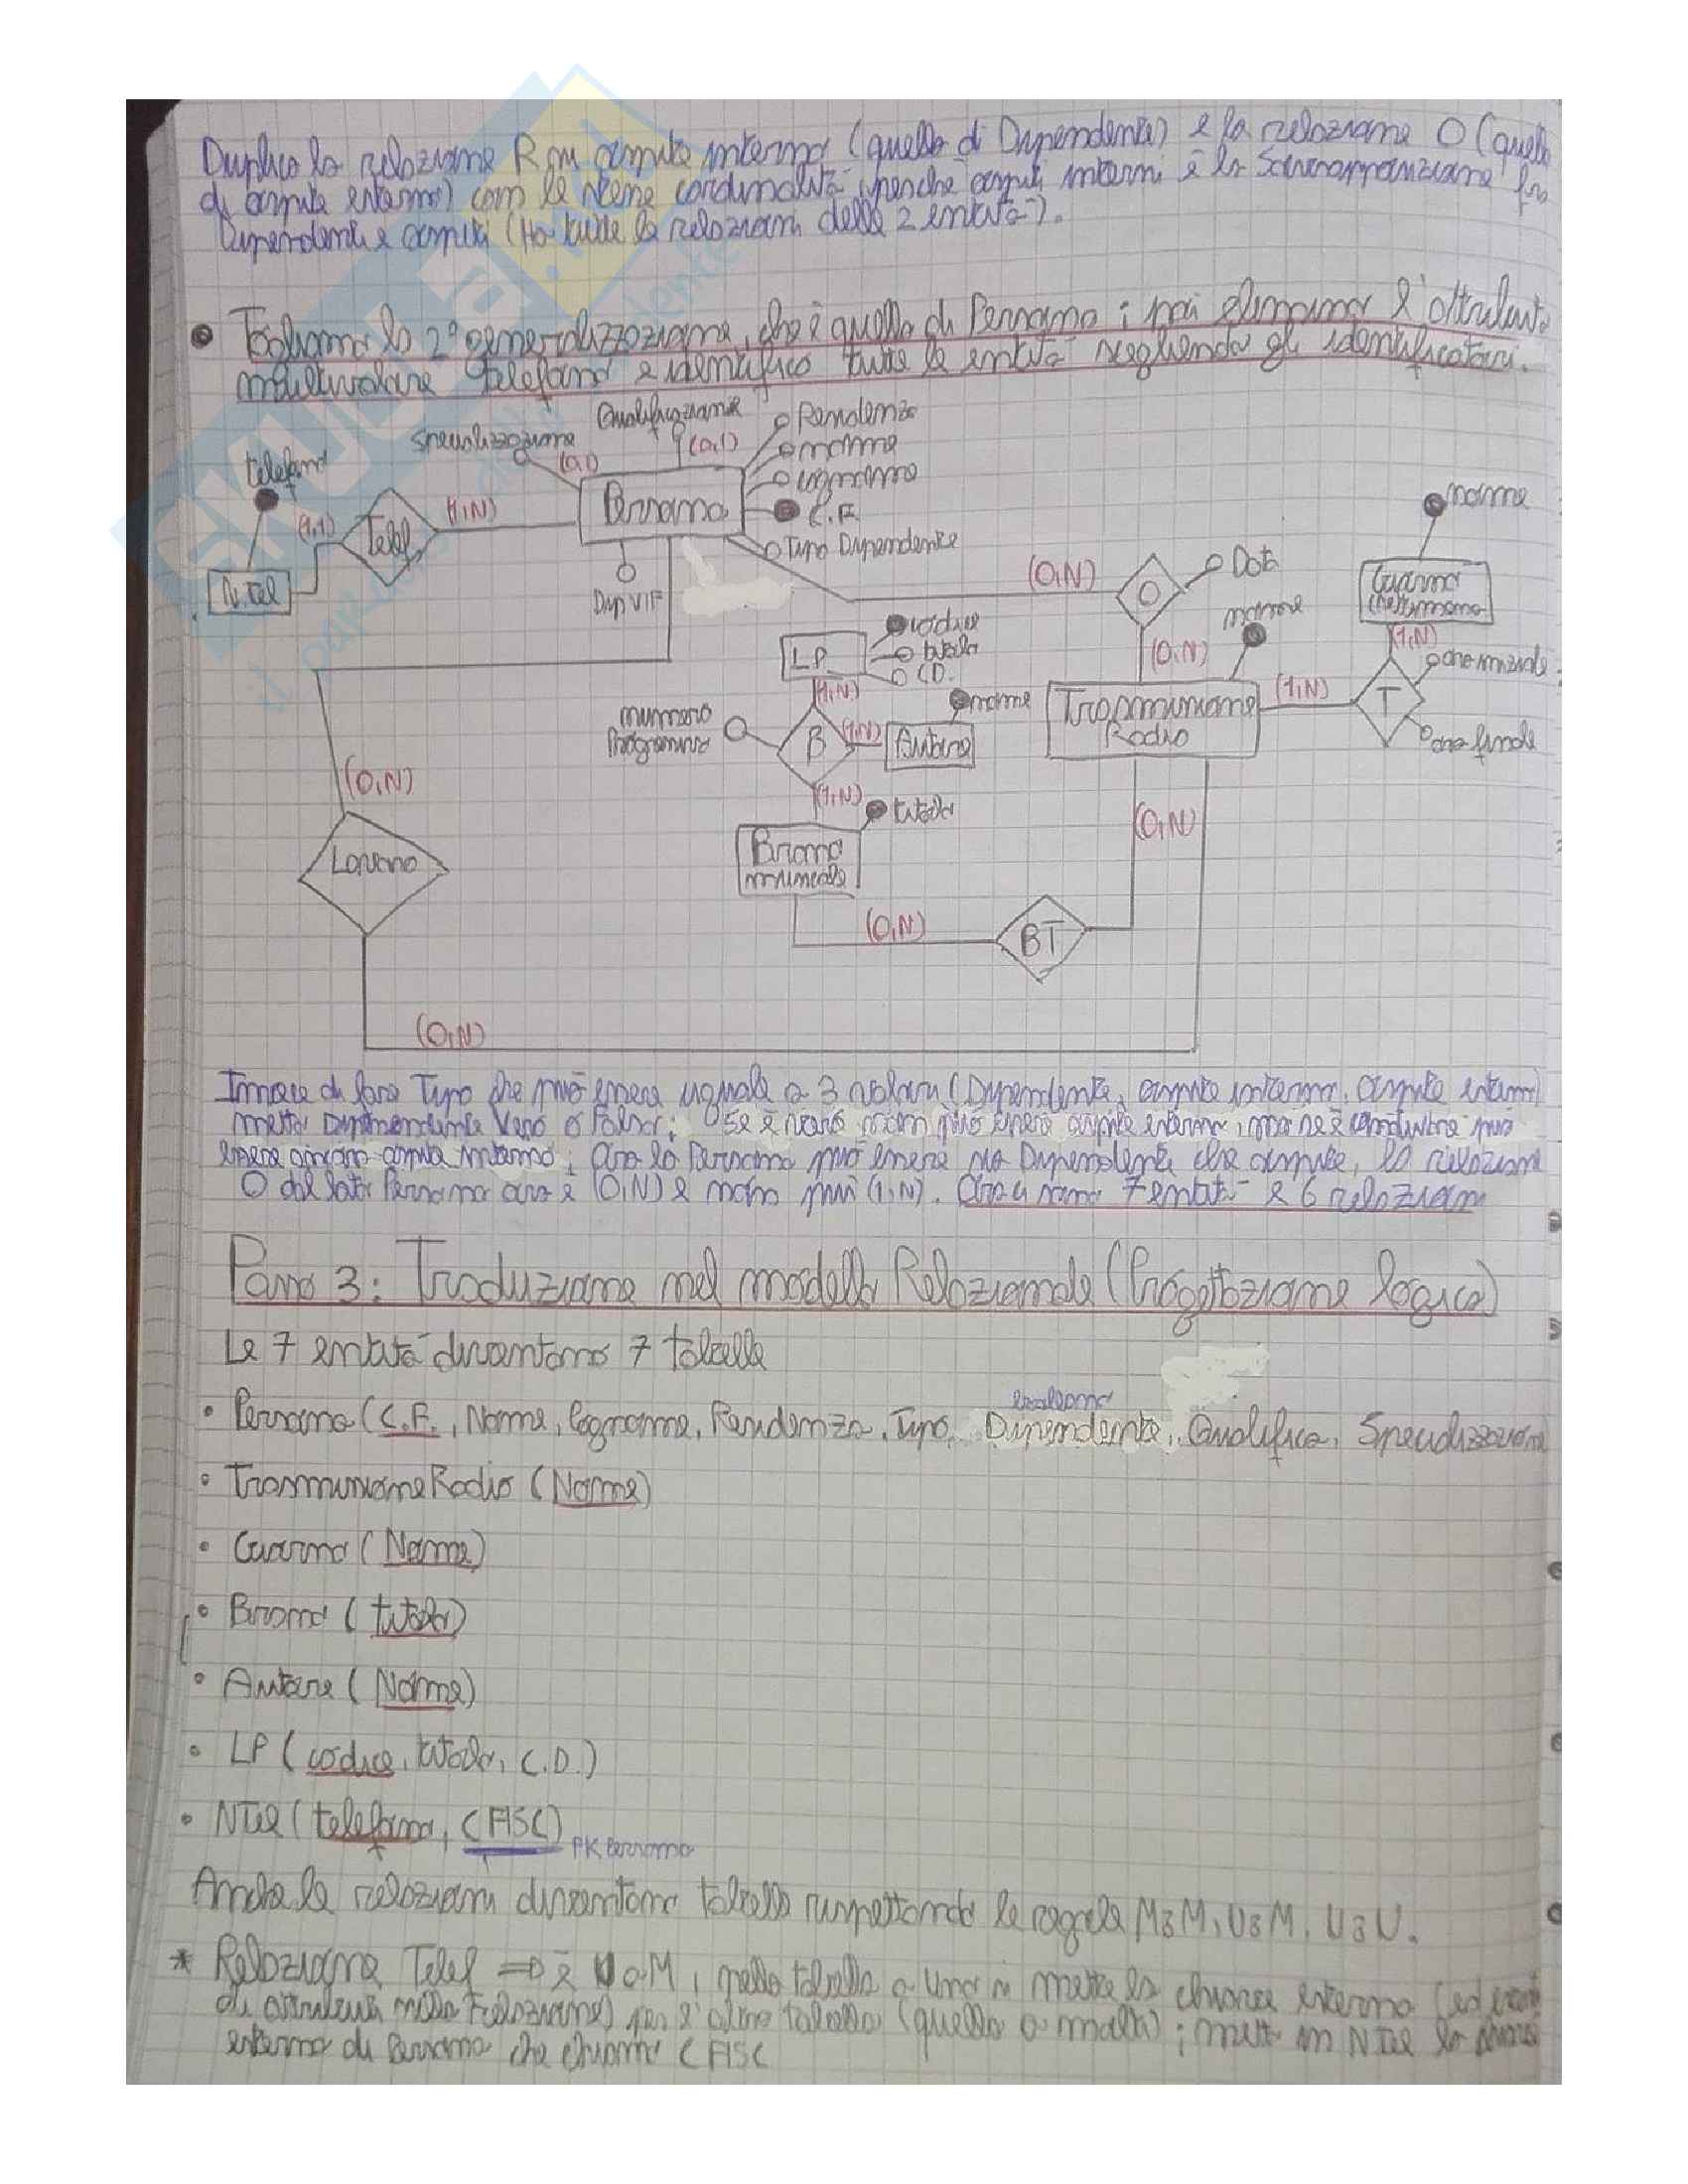 Duplico la relazione R su ospite interno (quello di Dipendente) e la relazione O (quella
di ospite esterno) con le stesse cardinalità, perchè ospiti interni è la Sovrapposizione fra
Dipendenti e ospiti (Ha tutte le relazioni delle 2 entità).
• Togliamo la 2ª generalizzazione, che è quella di Persona; poi eliminiamo l'attributo
multivalore telefono e identifico tutte le entità scegliendo gli identificatori.
Qualificazione
Residenza
Specializzazione
(0,1)
nome
telefono
(0,1)
cognome
nome
(1,1)
Telef
(1,N)
Persona
C.F.
Tipo Dipendente
N.Tel
Dip V/F
(0,N)
O
Data
nome
LP
codice
titolo
C.D.
(0,N)
(1,N)
ora iniziale
(1,N)
nome
Trasmissione
Radio
(1,N)
T
numero
Programma
B
(1,N)
Autore
ora finale
(0,N)
(1,N)
titolo
(0,N)
Lavorano
Brano
musicale
(0,N)
BT
(0,N)
Invece di fare Tipo che può essere uguale a 3 valori (Dipendente, ospite interno, ospite esterno)
metto Dipendente Vero o Falso; Se è vero non può essere ospite esterno, ma se è conduttore può
essere ancora ospite interno; Ora la Persona può essere sia Dipendente che ospite, la relazione
O dal lato Persona ora è (0,N) e non più (1,N). Ora ci sono 7 entità e 6 relazioni
Passo 3: Traduzione nel modello Relazionale (Progettazione logica)
Le 7 entità diventano 7 tabelle
booleano
• Persona (C.F., Nome, Cognome, Residenza, Tipo, Dipendente, Qualifica, Specializzazione
• TrasmissioneRadio (Nome)
• (Nome)
• Brano (titolo)
• Autore (Nome)
• LP (codice, titolo, C.D.)
• NTel (telefono, CFISC) PK Persona
Anche le relazioni diventano tabelle rispettando le regole M a M, U a M, U a U.
* Relazione Telef => è U a M, nella tabella a Uno si mette la chiave esterna (ed eventuali
di attributi nella relazione) per l'altra tabella (quella a molti); metto in NTel la chiave
esterna di Persona che chiamo CFISC